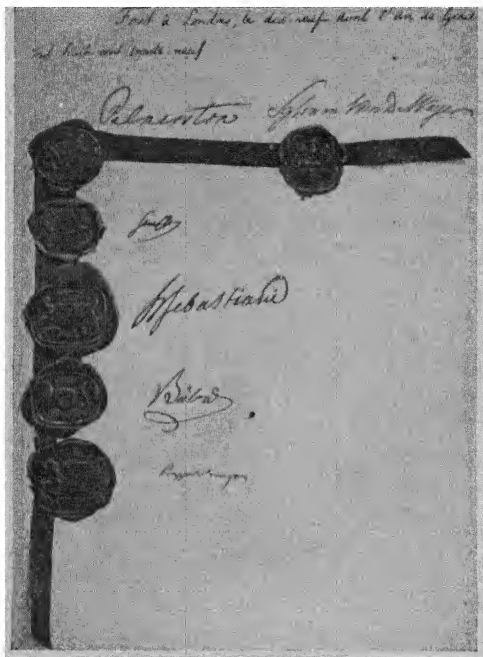 Fait à Londres, le dix-neuf Avril l'an de Grâce
mil huit cent trente-neuf
Palmerston Sylvain Van de Weyer
Sebastiani
Bülow